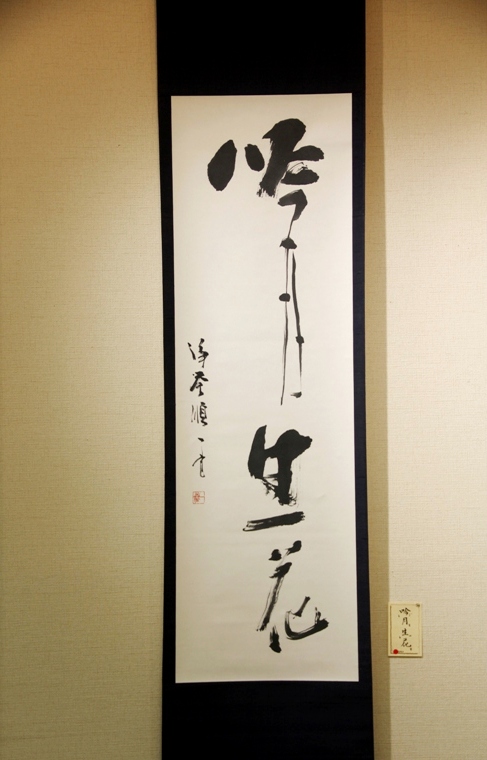 吟月生花
順一書
吟月
生花